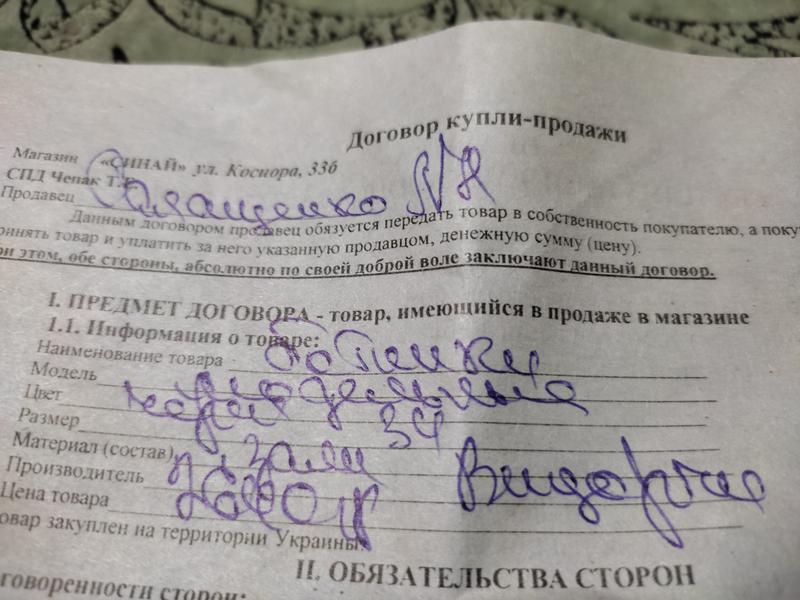 Договор купли-продажи
Магазин «СИНАЙ» ул. Косиора, 33б
СПД Чепак Т.
Продавец
Данным договором продавец обязуется передать товар в собственность покупателю, а поку
ринять товар и уплатить за него указанную продавцом, денежную сумму (цену).
ри этом, обе стороны, абсолютно по своей доброй воле заключают данный договор.
I. ПРЕДМЕТ ДОГОВОРА - товар, имеющийся в продаже в магазине
1.1. Информация о товаре:
Наименование товара Ботинки
Модель
Цвет
Размер 34
Материал (состав)
Производитель
Цена товара
овар закуплен на территории Украины.
II. ОБЯЗАТЕЛЬСТВА СТОРОН
говоренности сторон: